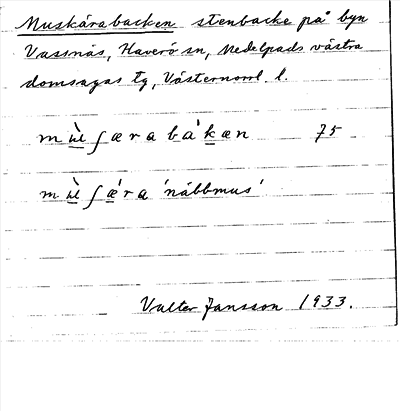 Muskärabacken stenbacke på byn
Vassnäs, Haverö sn, Medelpads västra
domsagas tg, Västernorrl. l.
mùʃærabákæn 75
mùʃǽra 'näbbmus'
Valter Jansson 1933.